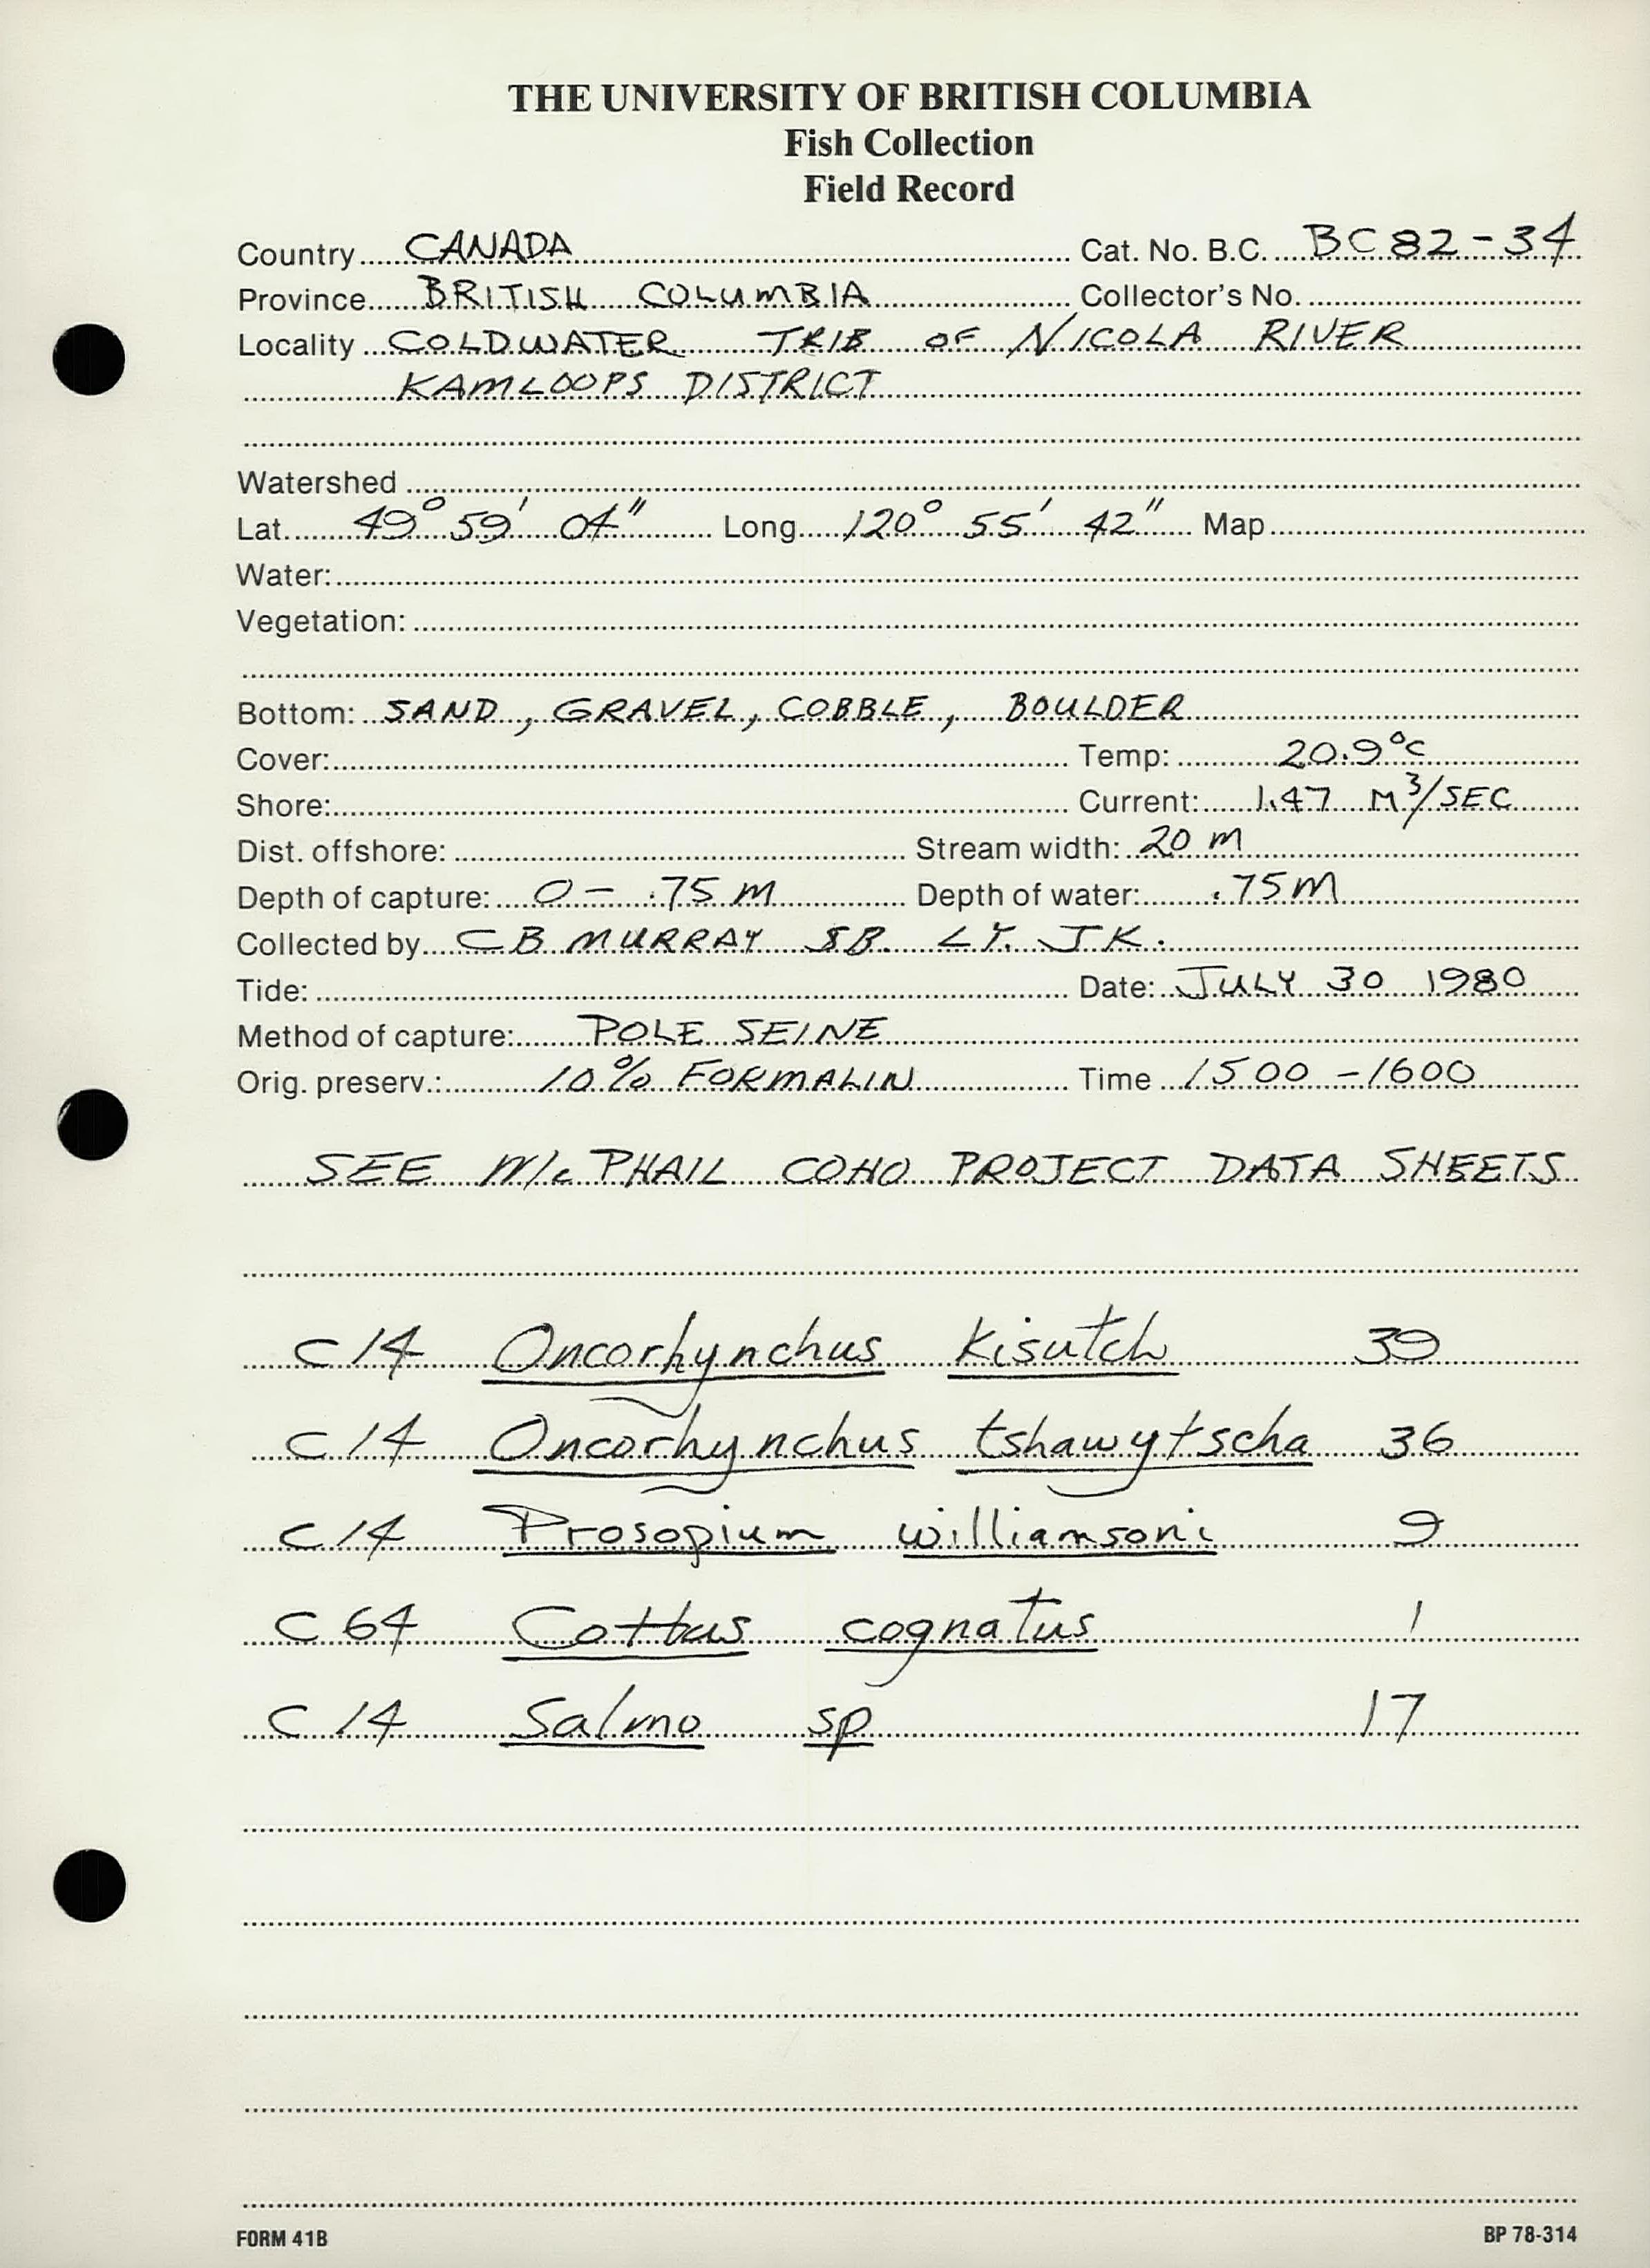 THE UNIVERSITY OF BRITISH COLUMBIA
Fish Collection
Field Record
Country CANADA Cat. No. B.C. BC 82-34
Province BRITISH COLUMBIA Collector's No.
Locality COLDWATER TRIB OF NICOLA RIVER
KAMLOOPS DISTRICT
Watershed
Lat. 49° 59' 04" Long. 120° 55' 42" Map
Water:
Vegetation:
Bottom: SAND, GRAVEL, COBBLE, BOULDER
Cover: Temp: 20.9°C
Shore: Current: 1.47 M³/SEC
Dist. offshore: Stream width: 20 m
Depth of capture: 0 - .75 m Depth of water: .75 M
Collected by CB MURRAY SB. LY. JK.
Tide: Date: JULY 30 1980
Method of capture: POLE SEINE
Orig. preserv.: 10% FORMALIN Time 1500 - 1600
SEE McPHAIL COHO PROJECT DATA SHEETS
C14 Oncorhynchus kisutch 39
C14 Oncorhynchus tshawytscha 36
C14 Prosopium williamsoni 9
C64 Cottus cognatus 1
C14 Salmo sp 17
FORM 41B BP 78-314